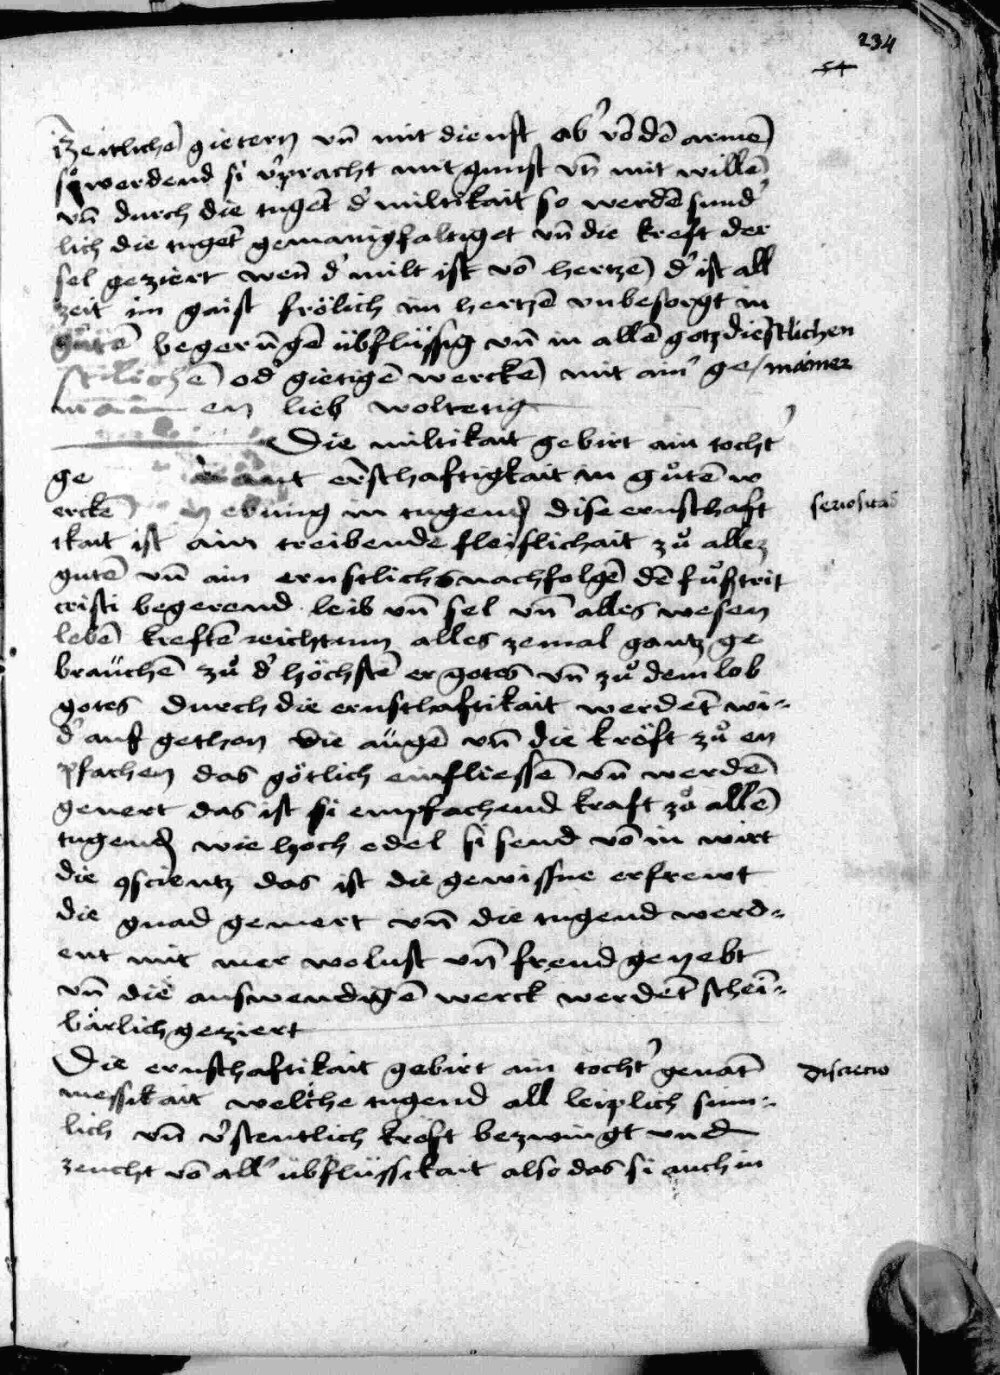 234
54
in zeitlichē gietern vn̄ mit dienst ab' vō dē armē
so werdend si v'pracht mit gunst vn̄ mit willē
vn̄ durch die tugēt d' miltikait so werdē sund'
lich die tugēt gemanigfaltiget vn̄ die kreft der
sel geziert wen̄ d' milt ist vō hertzē d' ist all
zeit im gaist frölich im hertzē vnbesorgt in
begerūgē üb'flüssig vn̄ in allē gotzdiestlichen
od' gietigē werckē mit ain' ge/mainer
en lieb woltetig
Die miltikait gebirt ain tocht'
ge ant ērsthaftigkait in gůtē w
erckē ebung in tugend dise ernsthaft
ikait ist ain treibende fleislichait zů allez
gutē vn̄ ain ernstlichs nachfolgē dē fůßtrit
cristi begerend leib vn̄ sel vn̄ alles wesen
lebē kreftē reichtum alles zemal gantz ge
brauchē zů d' höchstē er gotes vn̄ zů dem lob
gotes durch die ernsthaftikait werdēt wi-
d' auf gethon die augē vn̄ die kröft zů en
pfachen das götlich einfliessē vn̄ werdē
geuert das ist si empfachend kraft zů allē
tugend wie hoch edel si send vō in wirt
die 9scientz das ist die gewissne erfrewt
die gnad gemert vn̄ die tugend werd-
ent mit mer wolust vn̄ freud geyebt
vn̄ die auswendigē werck werdēt scheī-
bärlich geziert
Die ernsthaftikait gebirt ain tocht' genāt
messikait welche tugend all leiplich sinn-
lich vn̄ v'stentlich kröft bezwingt vnd
zeucht vō all' üb'flüssikait also das si auch in
seriositas
discrecio